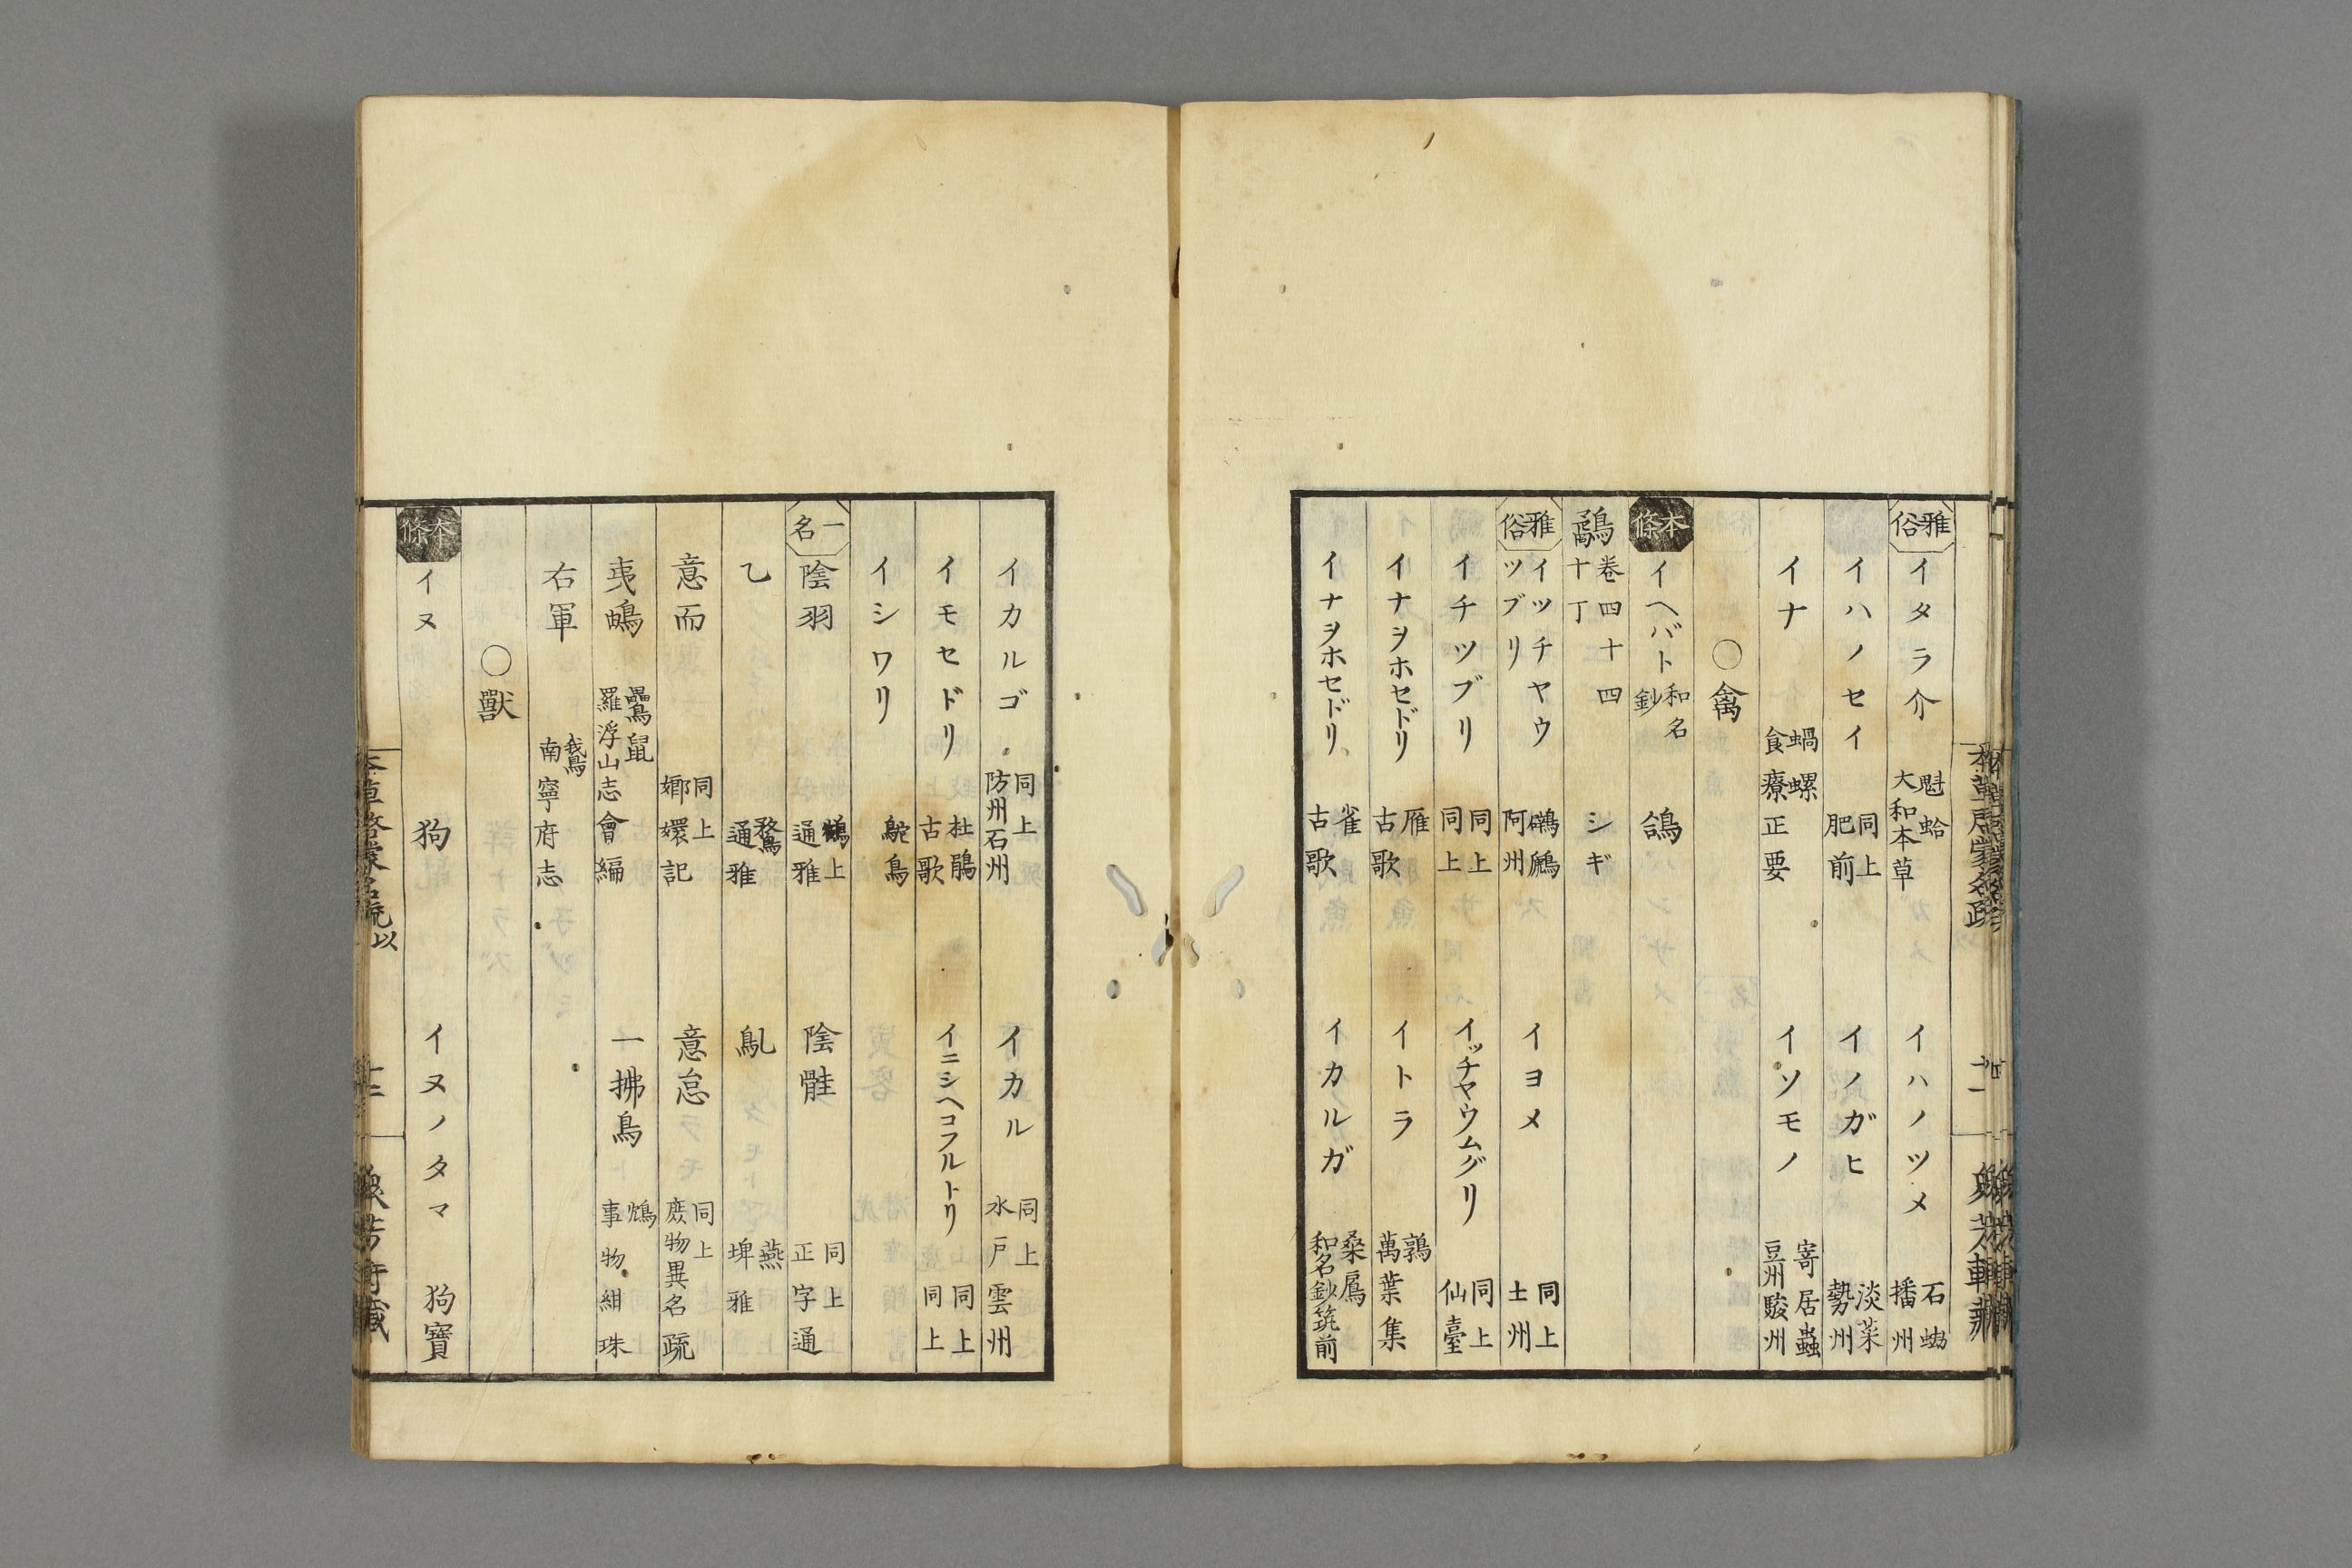 雅俗 イタラ介 魁蛤 大和本草 イハノツメ 石𧉧 播州
イハノセイ 同上 肥前 イノガヒ 淡菜 勢州
イナ 蝸螺 食療正要 イソモノ 寄居蟲 豆州駿州
○禽
本條 イヘバト 和名鈔 鴿
鷸 卷四十四 十丁 シギ
雅俗 イツチヤウツブリ 鸊鷉 阿州 イヨメ 同上 土州
イチツブリ 同上 同上 イッチヤウムグリ 同上 仙臺
イナヲホセドリ 雁 古歌 イトラ 鶉 萬葉集
イナヲホセドリ 雀 古歌 イカルガ 桑鳸 和名鈔筑前
イカルゴ 同上 防州石州 イカル 同上 水戸雲州
イモセドリ 杜鵑 古歌 イニシヘコフルトリ 同上 同上
イシワリ 鴕鳥
一名 陰羽 上 通雅 陰𩿨 同上 正字通
乙 鶩 通雅 鳦 燕 埤雅
意而 同上 嫏嬛記 意怠 同上 庶物異名疏
夷鴟 鸓鼠 羅浮山志會編 一拂鳥 鴆 事物紺珠
右軍 鵞 南寧府志
○獸
本條 イヌ 狗 イヌノタマ 狗寶